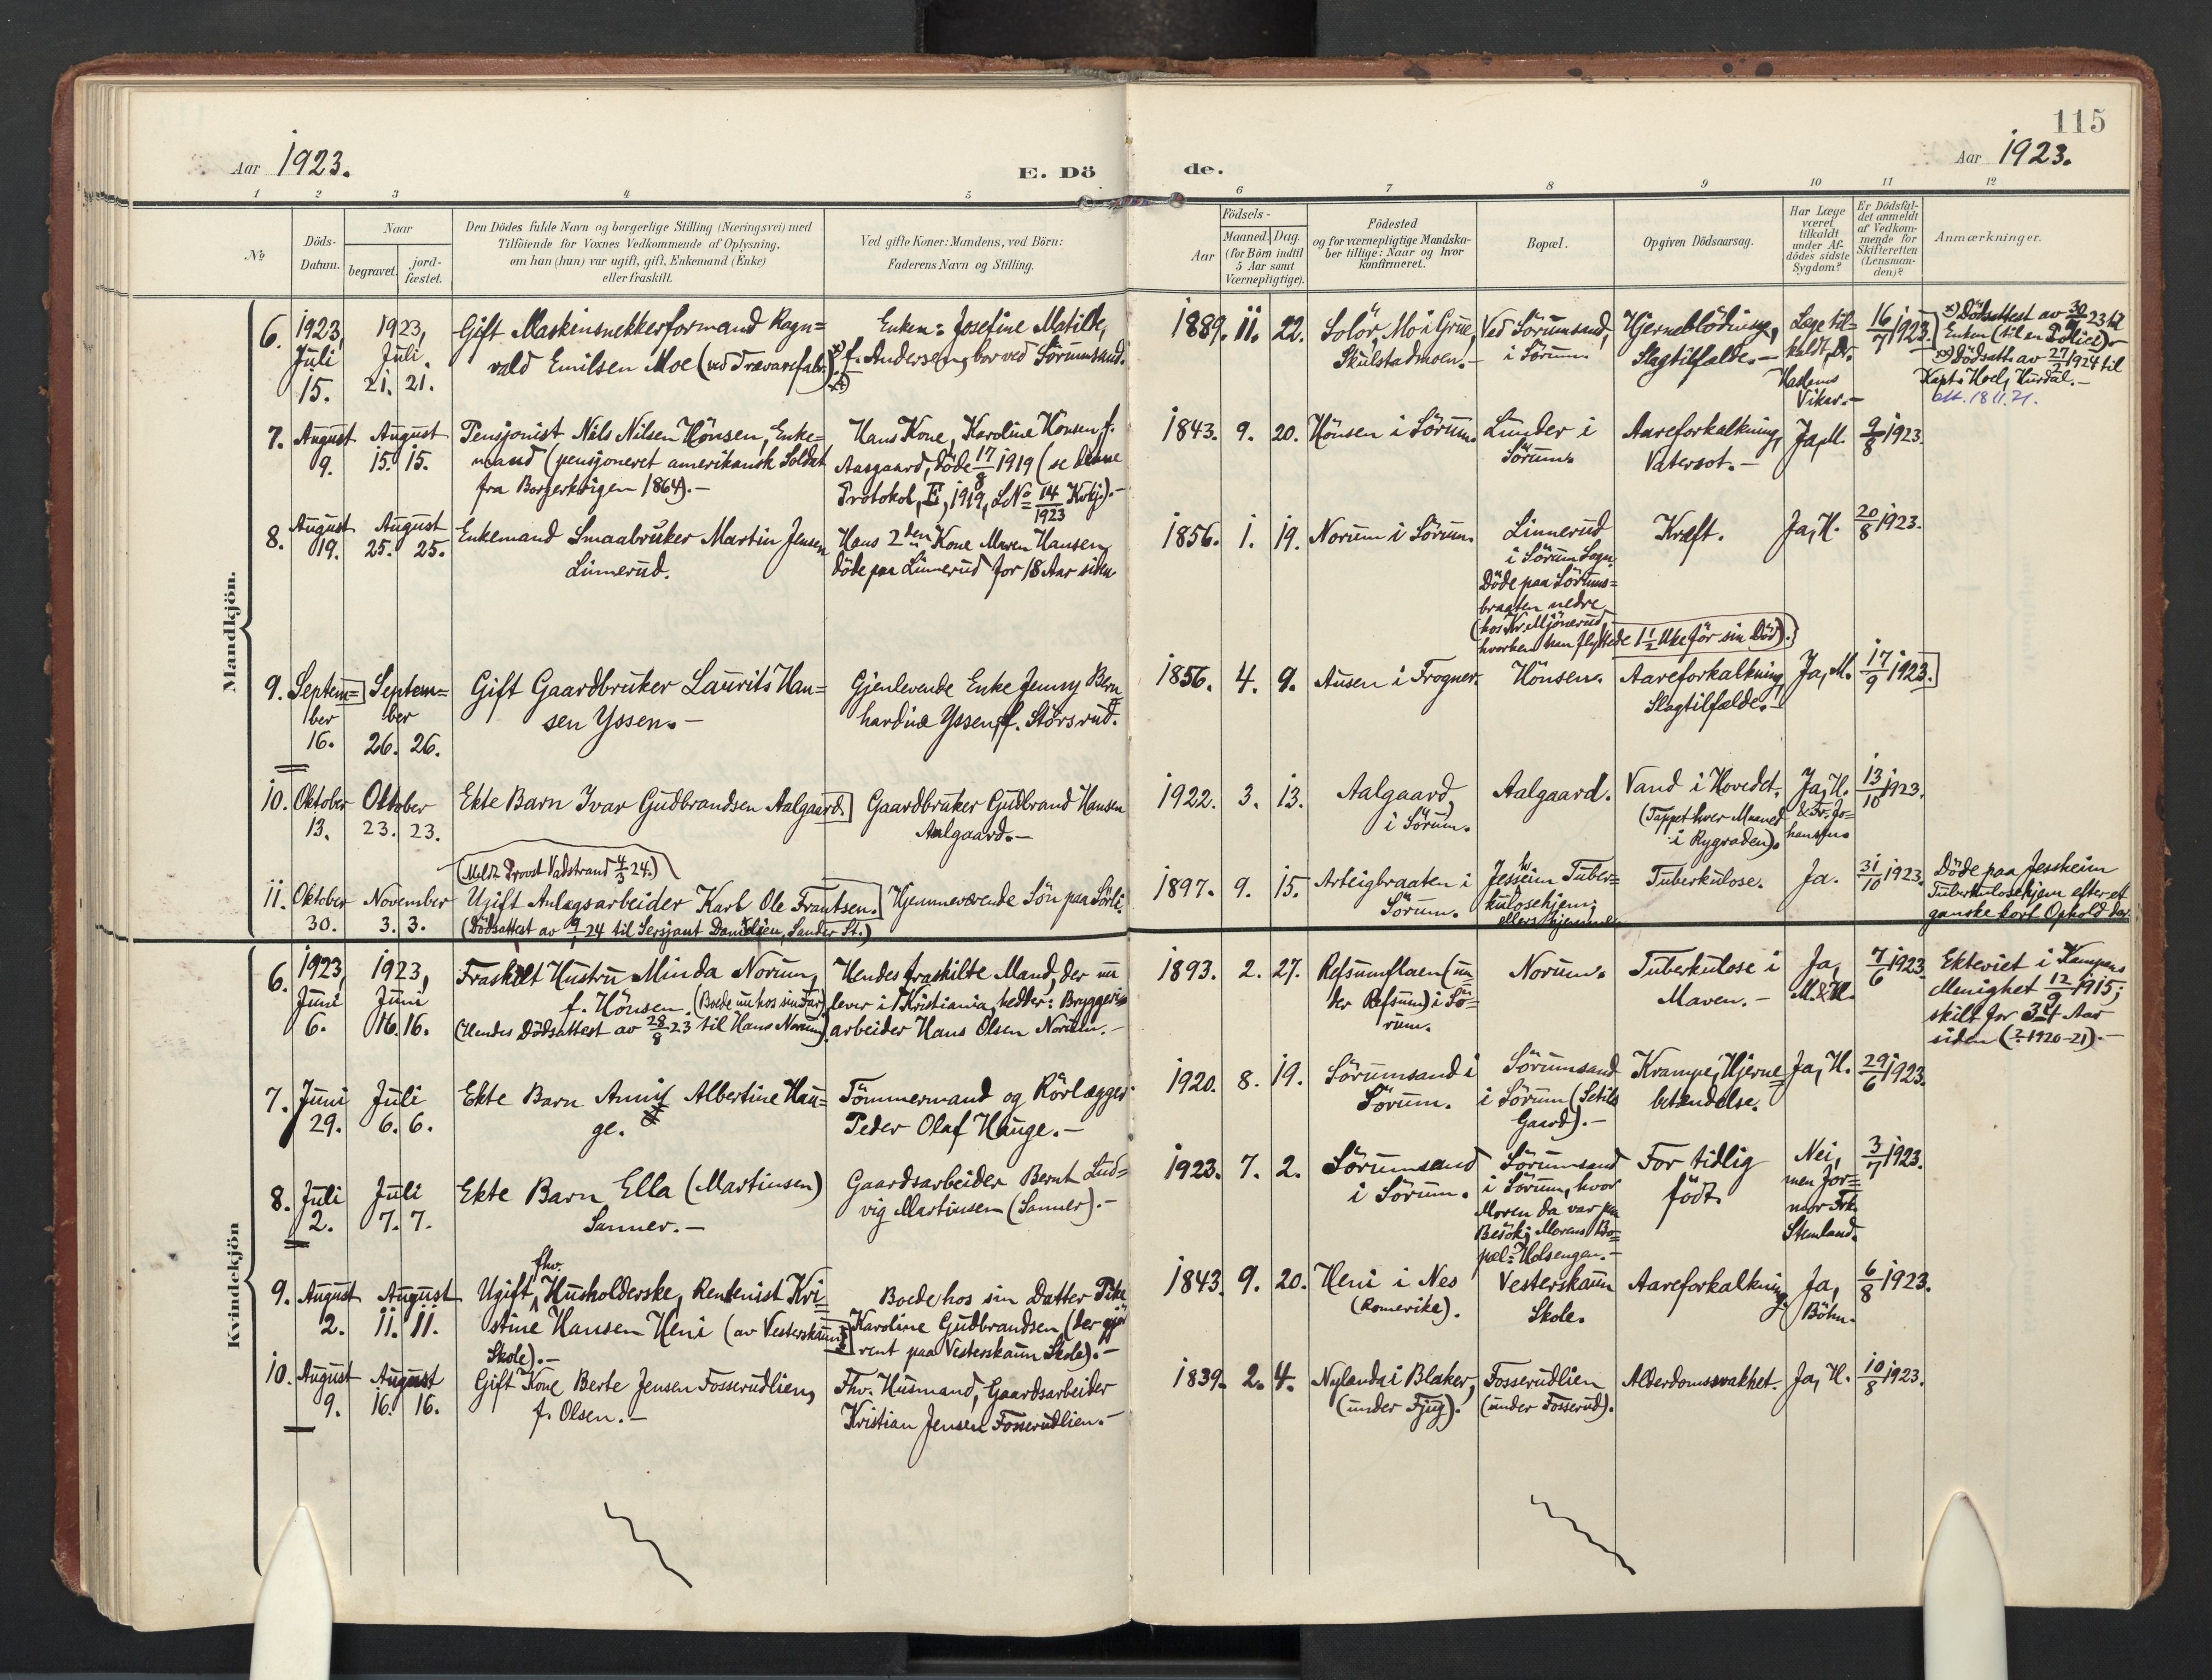 115
Aar 1923.
E. Dö de.
Aar 1923.
1 2 3 4 5 6 7 8 9 10 11 12
No
Döds-
Datum.
Naar
begravet.
jord-
fæstet.
Den Dödes fulde Navn og borgerlige Stilling (Næringsvei) med
Tilföiende for Voxnes Vedkommende af Oplysning,
om han (hun) var ugift, gift, Enkemand (Enke)
eller fraskilt.
Ved gifte Koner: Mandens, ved Börn:
Faderens Navn og Stilling.
Födsels-
Aar
Maaned.
Dag.
(for Börn indtil
5 Aar samt
Værnepligtige).
Födested
og for værnepligtige Mandska-
ber tillige: Naar og hvor
konfirmeret.
Bopæl.
Opgiven Dödsaarsag.
Har Læge
været
tilkaldt
under Af-
dödes sidste
Sygdom?
Er Dödsfal-
det anmeldt
af Vedkom-
mende for
Skifteretten
(Lensman-
den)?
Anmærkninger.
Mandkjön.
6.
1923,
Juli
15.
1923,
Juli
21. 21.
Gift Maskinsnekkerformand Ragn=
vald Emilsen Moe (ved Trævarefabr.).
Enken: Josefine Matilde,
f. Andersen, bor ved Sörumsand.
1889. 11. 22.
Solör, Mo i Grue,
Skulstadmoen.-
Ved Sörumsand,
i Sörum.
Hjerneblödning,
Slagtilfælde.-
Læge til=
kaldt, Dr.
Hadems
Vikar.-
16/7 1923.
x) Dödsattest av 30/7 23 til
Enken (til en Police).-
xx) Dödsatt. av 27/2 1924 til
Kapt. Hoel, Hurdal.-
7.
August
9.
August
15. 15.
Pensjonist Nils Nilsen Hönsen, Enke=
mand (pensjoneret amerikansk Soldat
fra Borgerkrigen 1864).-
Hans Kone, Karoline Hönsen f.
Aasgaard, döde 17/8 1919 (se denne
Protokol, E, 1919, LNo 14 Kvkj.).-
1923
1843. 9. 20.
Hönsen i Sörum.
Lunder i
Sörum.
Aareforkalkning,
Vatersot.-
Ja, M.
9/8 1923.
8.
August
19.
August
25. 25.
Enkemand Smaabruker Martin Jensen
Linnerud.
Hans 2den Kone Maren Hansen,
döde paa Linnerud for 18 Aar siden
1856. 1. 19.
Norum i Sörum.
Linnerud
i Sörum Sogn.
Döde paa Sörums=
braaten nedre
(hos Kr. Mjönerud,
hvorhen han flyttede 1 1/2 Uke för sin Död).
Kræft.
Ja, H.
20/8 1923.
9.
Septem=
ber
16.
Septem=
ber
26. 26.
Gift Gaardbruker Laurits Han=
sen Yssen.-
Gjenlevende Enke Jenny Bern
hardine Yssen, f. Störsrud.
1856. 4. 9.
Ausen i Frogner.
Hönsen.
Aareforkalkning,
Slagtilfælde.-
Ja, M.
17/9 1923.
10.
Oktober
13.
Oktober
23. 23.
Ekte Barn Ivar Gudbrandsen Aalgaard.
Gaardbruker Gudbrand Hansen
Aalgaard.-
1922. 3. 13.
Aalgaard,
i Sörum.
Aalgaard.
Vand i Hovedet.
(Tappet hver Maaned
i Rygraden).
Ja, H.
& Fr. Jo=
hansen.
13/10 1923.
(Meldt Provst Vadstrand 4/3 24.)
11.
Oktober
30.
November
3. 3.
Ugift Anlægsarbeider Karl Ole Frantsen.
(Dödsattest av 9/1 24 til Sersjant Danielsen, Sander St.)
Hjemmeværende Sön paa Sörli.
1897. 9. 15.
Arteigbraaten i
Sörum.
Jessheim Tuber=
kulosehjem;
ellers hjemme.
Tuberkulose.
Ja.
31/10 1923.
Döde paa Jessheim
Tuberkulosehjem efter et
ganske kort Ophold der.
Kvindekjön
6.
1923,
Juni
6.
1923,
Juni
16. 16.
Fraskilt Hustru Minda Norum,
f. Hönsen. (Boede nu hos sin Far).
(Hendes Dödsattest av 28/8 23 til Hans Norum).
Hendes fraskilte Mand, der nu
lever i Kristiania, hedder: Bryggeri=
arbeider Hans Olsen Norum.-
1893. 2. 27.
Refsumflaen (un
der Refsum) i Sö=
rum.
Norum.
Tuberkulose i
Maven.-
Ja,
M. & H.
7/6 1923
Ekteviet i Kampens
Menighet 12/9 1915;
skilt for 3 Aar
siden (? 1920-21).-
7.
Juni
29.
Juli
6. 6.
Ekte Barn Annie Albertine Hau=
ge.
Tömmermand og Rörlægger
Peder Olaf Hauge.-
1920. 8. 19.
Sörumsand i
Sörum.
Sörumsand
i Sörum (Setils
Gaard).-
Krampe, Hjerne=
betændelse.
Ja, H.
29/6 1923.
8.
Juli
2.
Juli
7. 7.
Ekte Barn Ella (Martinsen)
Sanner.-
Gaardsarbeider Bernt Lud=
vig Martinsen (Sanner).-
1923. 7. 2.
Sörumsand
i Sörum.
Sörumsand
i Sörum, hvor
Moren da var paa
Besök; Morens Bo=
pæl: Holsengen.-
For tidlig
födt.
Nei,
men Jor=
mor Frk.
Stenland.
3/7 1923.
9.
August
2.
August
11. 11.
fhv.
Ugift, Husholderske, Rentenist Kri=
stine Hansen Heni (av Vesterskaun
Skole).-
Boede hos sin Datter Pike
Karoline Gudbrandsen (der gjör
rent paa Vesterskaun Skole).-
1843. 9. 20.
Heni i Nes
(Romerike).
Vesterskaun
Skole.
Aareforkalkning.
Ja,
Böhn.
6/8 1923.
10.
August
9.
August
16. 16.
Gift Kone Berte Jensen Fosserudlien,
f. Olsen.-
Fhv. Husmand, Gaardsarbeider
Kristian Jensen Fosserudlien.-
1839. 2. 4.
Nylanda i Blaker,
(under Fjug).
Fosserudlien
(under Fosserud).
Alderdomssvakhet.
Ja, H.
10/8 1923.